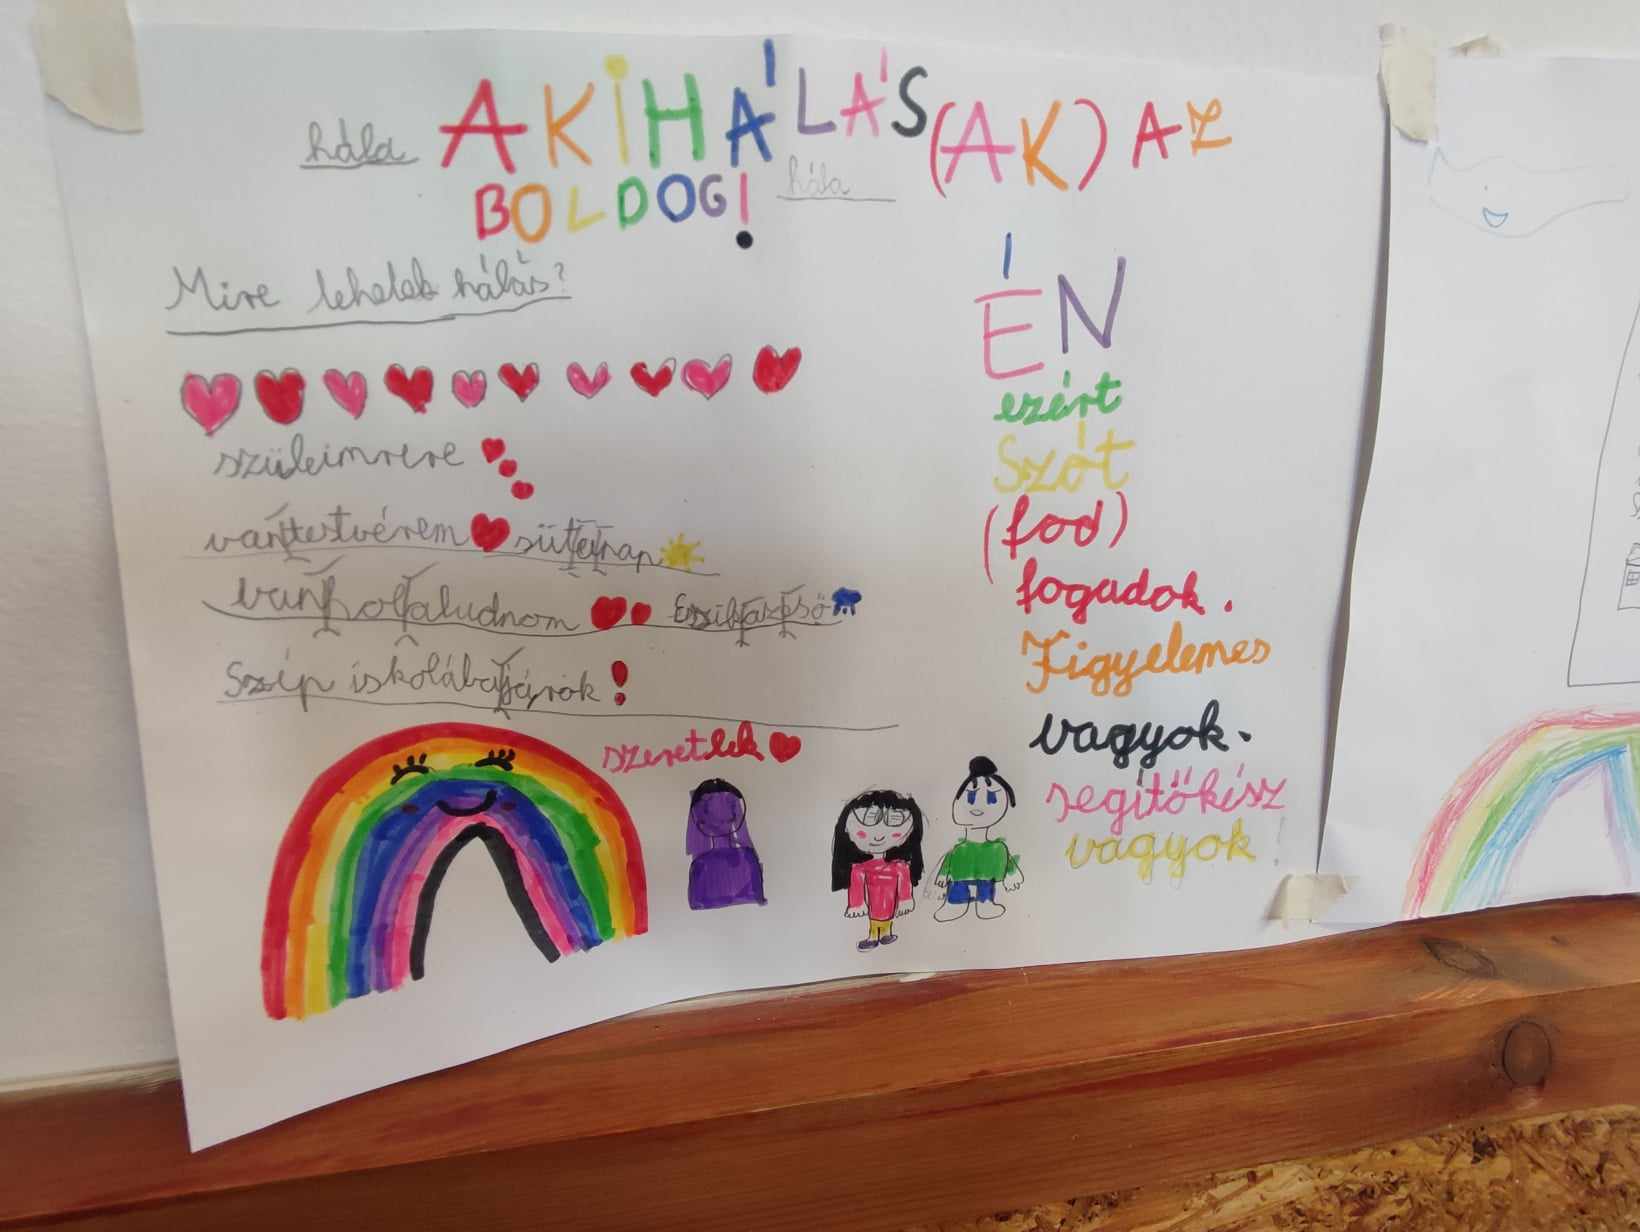 hála AKIHÁLÁS (AK) AZ
BOLDOG! hála
Mire lehetek hálás?
szüleimrere
vantestvérem sütanap
vanholaludnom Esikazeső
Szép iskolábajárok!
szeretlek
ÉN
ezért
Szót
(fod)
fogadok.
Figyelemes
vagyok.
segítőkész
vagyok!